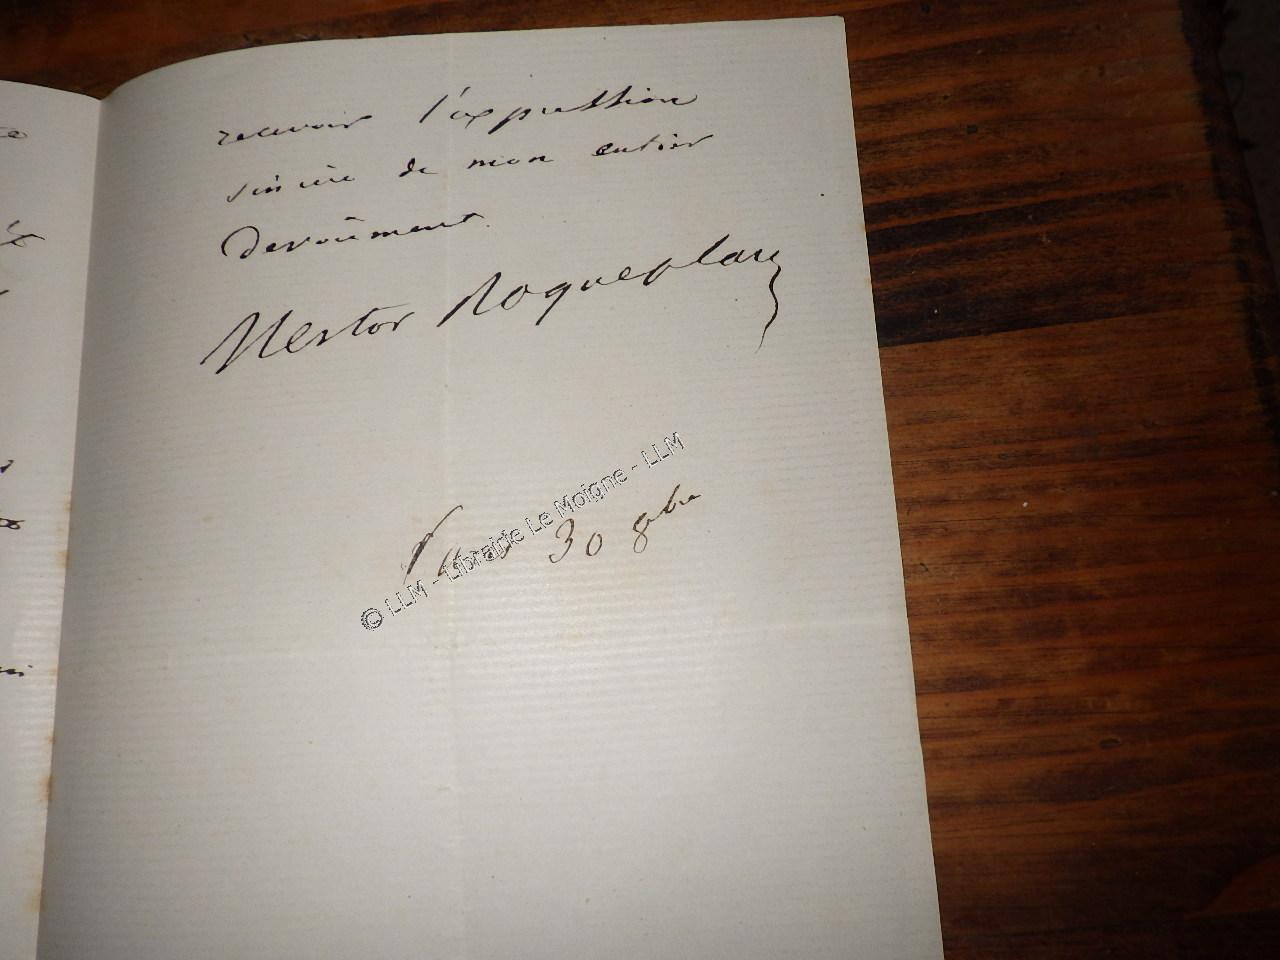 recevoir l'expression
sincère de mon entier
Devoûment.
Nestor Roqueplan
30 8bre
© LLM - Librairie Le Moigne - LLM